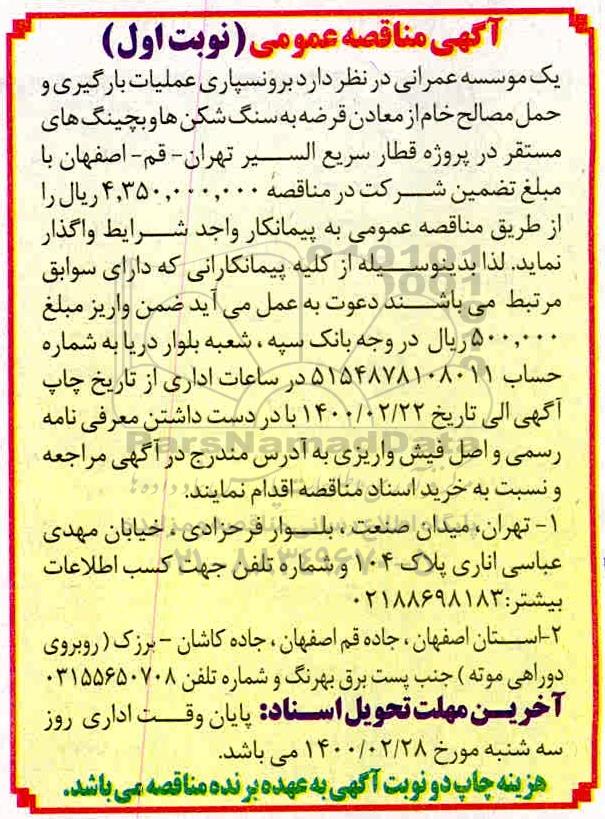 آگهی مناقصه عمومی (نوبت اول)
یک موسسه عمرانی در نظر دارد برونسپاری عملیات بارگیری و
حمل مصالح خام از معادن قرضه به سنگ شکن ها و بچینگ های
مستقر در پروژه قطار سریع السیر تهران- قم- اصفهان با
مبلغ تضمین شرکت در مناقصه ۴,۳۵۰,۰۰۰,۰۰۰ ریال را
از طریق مناقصه عمومی به پیمانکار واجد شرایط واگذار
نماید. لذا بدینوسیله از کلیه پیمانکارانی که دارای سوابق
مرتبط می باشند دعوت به عمل می آید ضمن واریز مبلغ
۵۰۰,۰۰۰ ریال در وجه بانک سپه ، شعبه بلوار دریا به شماره
حساب ۵۱۵۴۸۷۸۱۰۸۰۱۱ در ساعات اداری از تاریخ چاپ
آگهی الی تاریخ ۱۴۰۰/۰۲/۲۲ با در دست داشتن معرفی نامه
رسمی و اصل فیش واریزی به آدرس مندرج در آگهی مراجعه
و نسبت به خرید اسناد مناقصه اقدام نمایند:
۱- تهران، میدان صنعت ، بلوار فرحزادی ، خیابان مهدی
عباسی اناری پلاک ۱۰۴ و شماره تلفن جهت کسب اطلاعات
بیشتر:۰۲۱۸۸۶۹۸۱۸۳
۲-استان اصفهان ، جاده قم اصفهان ، جاده کاشان - برزک ( روبروی
دوراهی موته ) جنب پست برق بهرنگ و شماره تلفن ۰۳۱۵۵۶۵۰۷۰۸
آخرین مهلت تحویل اسناد: پایان وقت اداری روز
سه شنبه مورخ ۱۴۰۰/۰۲/۲۸ می باشد.
هزینه چاپ دو نوبت آگهی به عهده برنده مناقصه می باشد.
ParsNamadData
۰۲۱-۸۸۳۴۹۶۷۰-۵